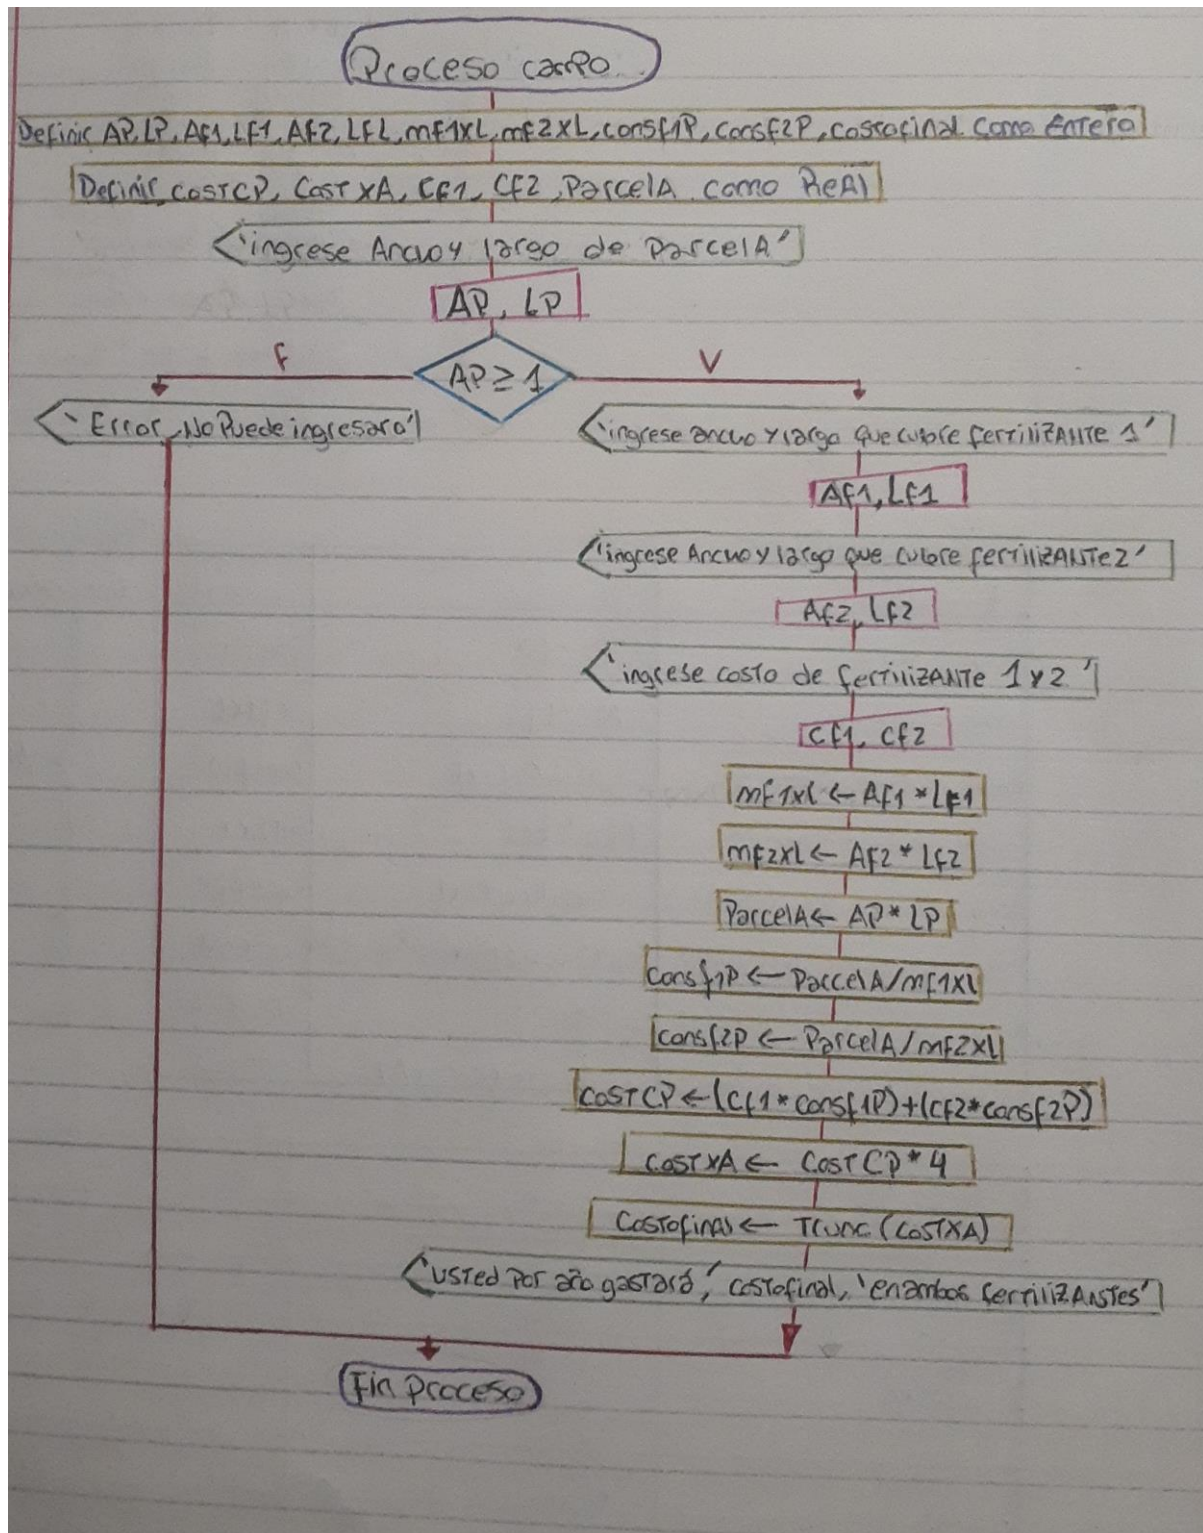 Proceso campo
Definir AP, LP, Af1, Lf1, Af2, LFL, mf1XL, mf2XL, consf1P, consf2P, costofinal como Entero
Definir, COSTCP, COSTXA, Cf1, Cf2, ParcelA como ReAl
'ingrese Ancho y largo de ParcelA'
AP, LP
AP ≥ 1
F
V
'Error, No Puede ingresar 0'
'ingrese ancho y largo que cubre fertiliZANTE 1'
Af1, Lf1
'ingrese Ancho y largo que cubre fertiliZANTE 2'
Af2, Lf2
'ingrese costo de fertiliZANTE 1 y 2'
Cf1, Cf2
mf1xl ← Af1 * Lf1
mf2xL ← Af2 * Lf2
ParcelA ← AP * LP
Consf1P ← ParcelA/mf1Xl
consf2P ← ParcelA/mf2xl
COSTCP ← (Cf1*consf1P)+(cf2*consf2P)
COSTXA ← COSTCP * 4
Costofinal ← Trunc (COSTXA)
'usted por año gastará', costofinal, 'en ambos fertiliZANTES'
Fin Proceso